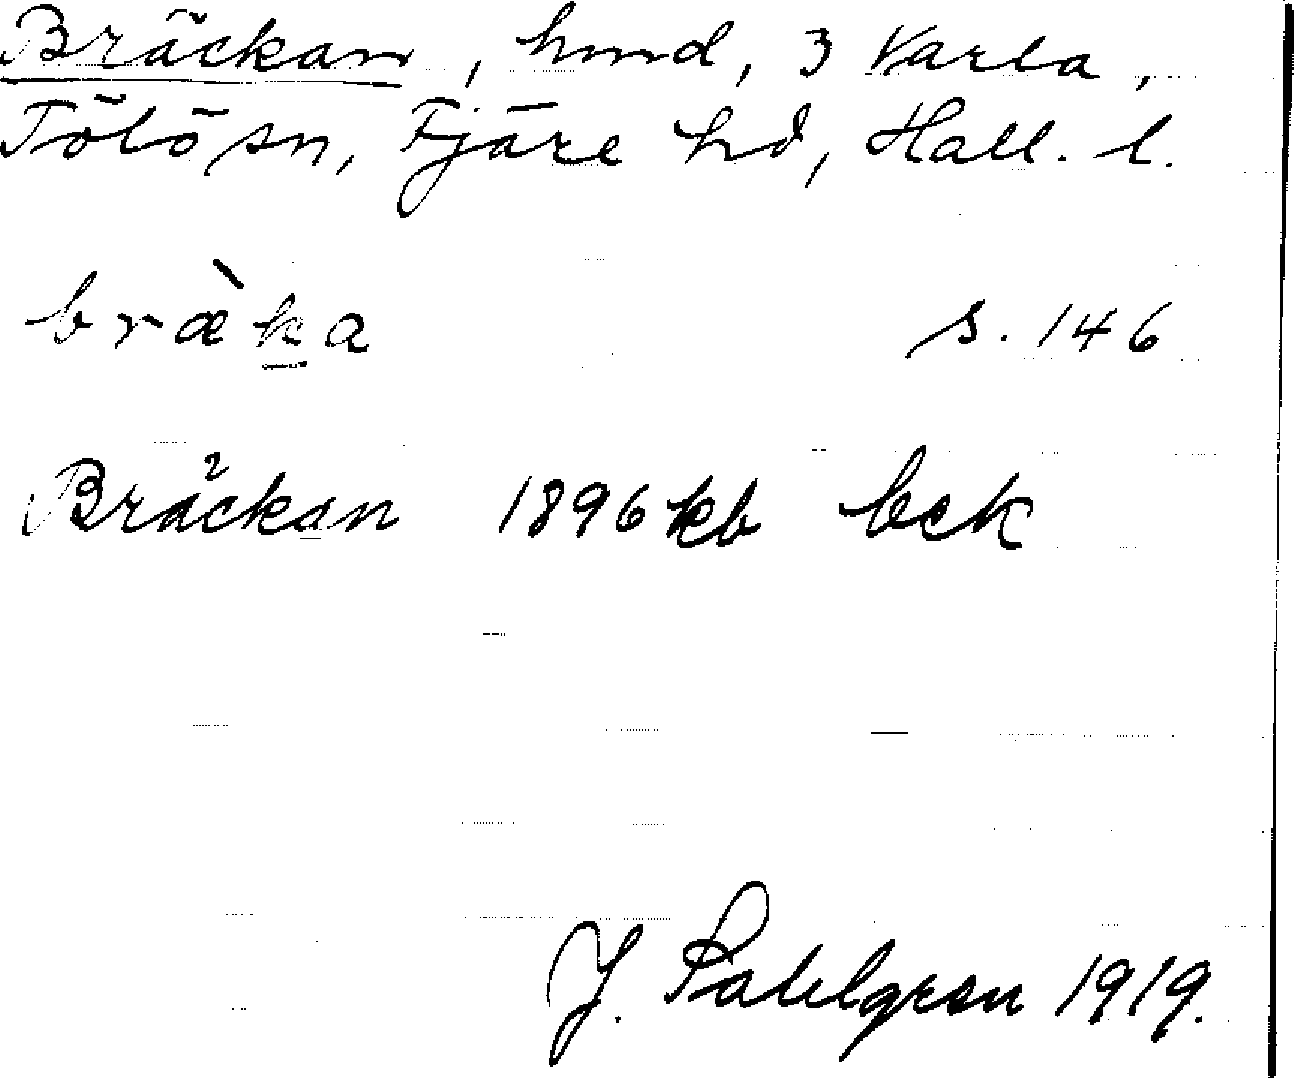 Bräckan, hmd, 3 Varla,
Tölö sn, Fjäre hd, Hall. l.
bræ̀ka s. 146
Bräckan 1896 kb bck
J. Sahlgren 1919.